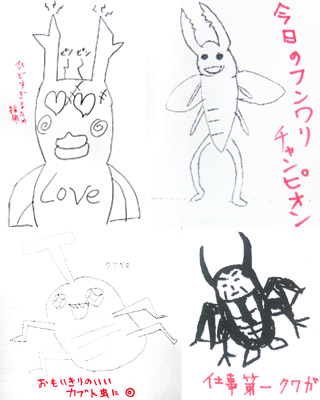 ピン ピン
ひどすぎるため
採用
Love
今日のフンワリ
チャンピオン
クワガタ
おもいきりのいい
カブト虫に
仕事第一クワガ